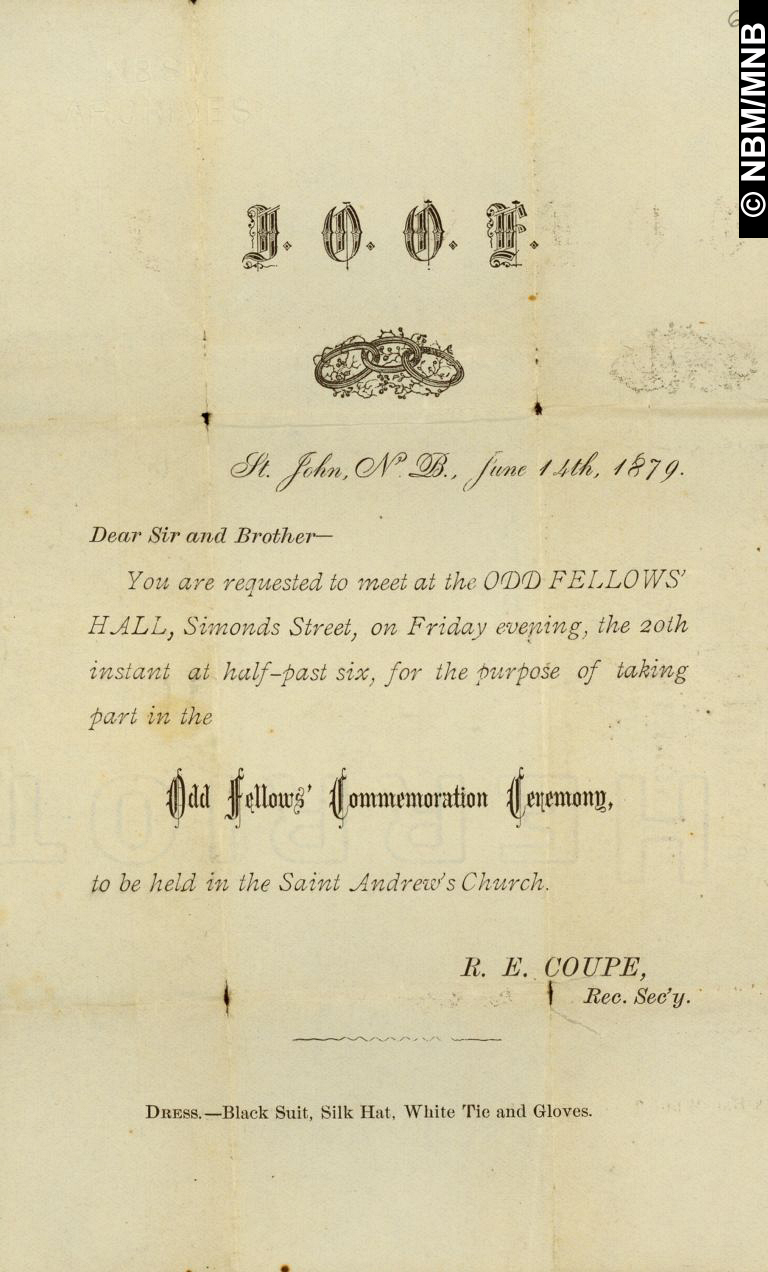 © NBM/MNB
I. O. O. F.
St. John, N. B., June 14th, 1879.
Dear Sir and Brother—
You are requested to meet at the ODD FELLOWS'
HALL, Simonds Street, on Friday evening, the 20th
instant at half-past six, for the purpose of taking
part in the
Odd Fellows' Commemoration Ceremony,
to be held in the Saint Andrew's Church.
R. E. COUPE,
Rec. Sec'y.
DRESS.—Black Suit, Silk Hat, White Tie and Gloves.